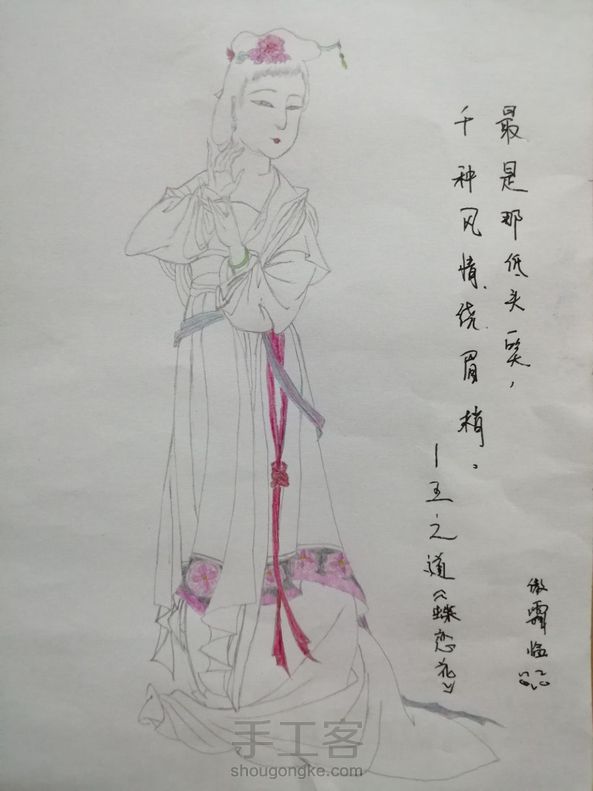 最是那低头一笑，
千种风情、绕眉梢。
—王之道《蝶恋花》
傲霜临
手工客
shougongke.com